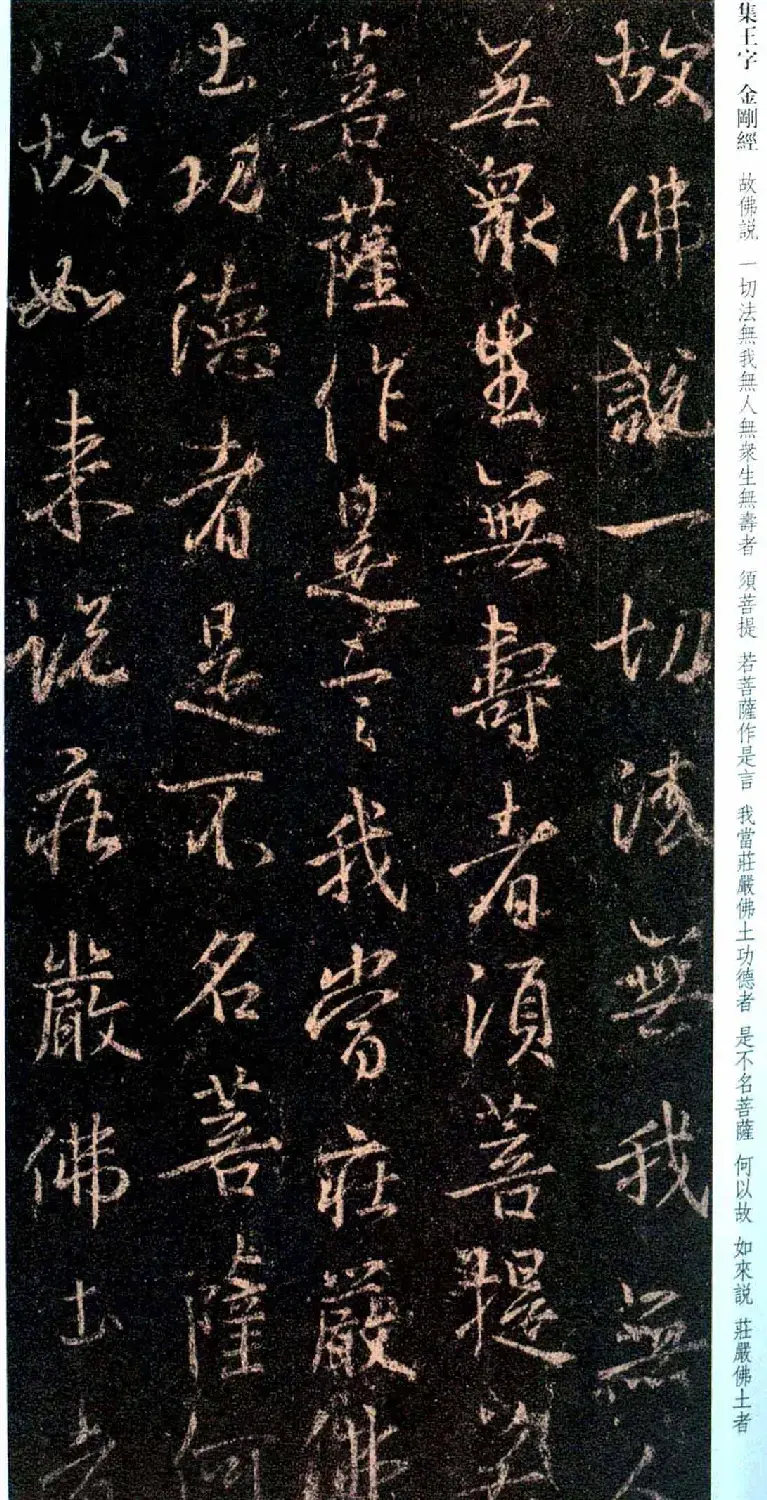 集王字 金剛經 故佛説 一切法無我無人無衆生無壽者 須菩提 若菩薩作是言 我當莊嚴佛土功德者 是不名菩薩 何以故 如來説 莊嚴佛土者
故佛説一切法無我無人
無衆生無壽者須菩提若
菩薩作是言我當莊嚴佛
土功德者是不名菩薩何
以故如来説莊嚴佛土者